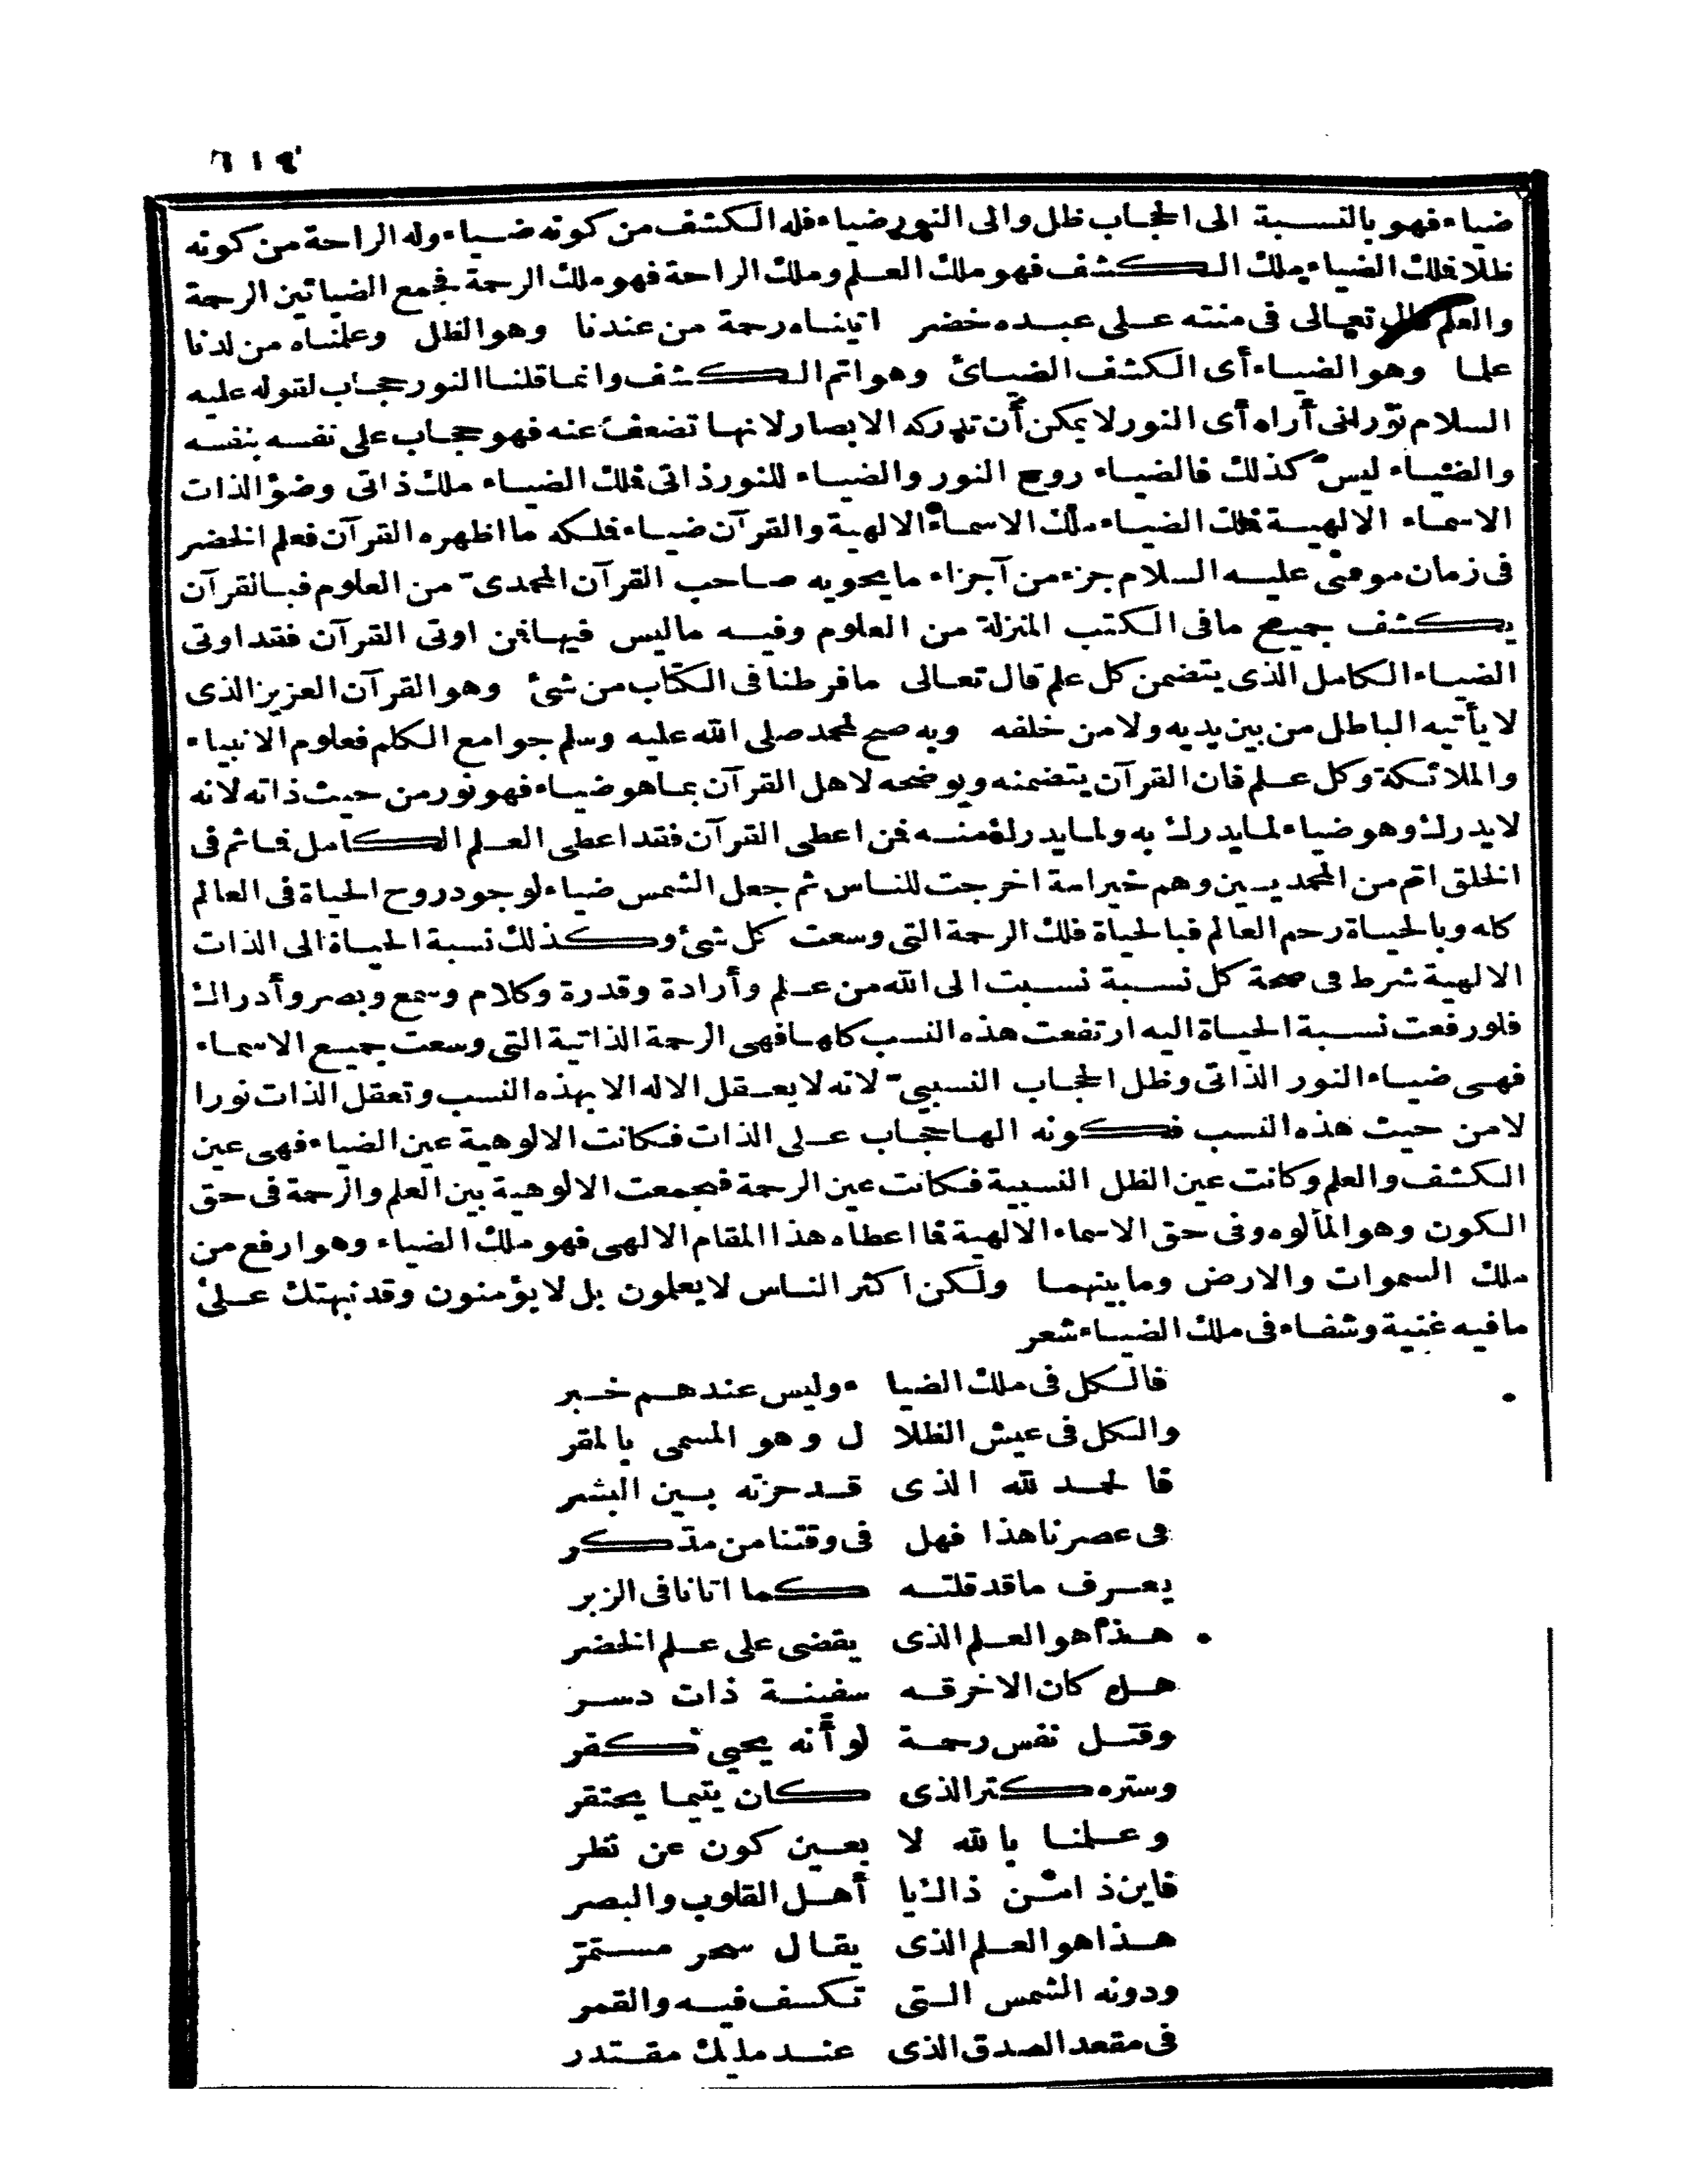 ضياء فهو بالنسبة الى الحجاب ظل والى النور ضياء فله الكشف من كونه ضياء وله الراحة من كونه
ظلا فملك الضياء ملك الكشف فهو ملك العلم وملك الراحة فهو ملك الرحمة فجمع الضيائين الرحمة
والعلم قال تعالى فى منته على عبده خضر اتيناه رحمة من عندنا وهو الظل وعلمناه من لدنا
علما وهو الضياء أى الكشف الضيائ وهو اتم الكشف وانما قلنا النور حجاب لقوله عليه
السلام نور انى أراه أى النور لا يمكن أن تدركه الابصار لانها تضعف عنه فهو حجاب على نفسه بنفسه
والضياء ليس كذلك فالضياء روح النور والضياء للنور ذاتى فملك الضياء ملك ذاتى وضوٴ الذات
الاسماء الالهية فملك الضياء ملك الاسماء الالهية والقرآن ضياء فملكه ما اظهره القرآن فعلم الخضر
فى زمان موسى عليه السلام جزء من آجزاء ما يحويه صاحب القرآن المحمدى من العلوم فبالقرآن
يكشف جميع ما فى الكتب المنزلة من العلوم وفيه ما ليس فيها فمن اوتى القرآن فقد اوتى
الضياء الكامل الذى يتضمن كل علم قال تعالى ما فرطنا فى الكتاب من شئ وهو القرآن العزيز الذى
لا يأتيه الباطل من بين يديه ولا من خلفه وبه صح لمحمد صلى الله عليه وسلم جوامع الكلم فعلوم الانبياء
والملائكة وكل علم فان القرآن يتضمنه ويوضحه لاهل القرآن بما هو ضياء فهو نور من حيث ذاته لانه
لا يدرك وهو ضياء لما يدرك به ولما يدرك منه فمن اعطى القرآن فقد اعطى العلم الكامل فما ثم فى
الخلق اتم من المحمديين وهم خير امة اخرجت للناس ثم جعل الشمس ضياء لوجود روح الحياة فى العالم
كله وبالحياة رحم العالم فبالحياة فلك الرحمة التى وسعت كل شئ وكذلك نسبة الحياة الى الذات
الالهية شرط فى صحة كل نسبة نسبت الى الله من علم وأرادة وقدرة وكلام وسمع وبصر وأدراك
فلو رفعت نسبة الحياة اليه ارتفعت هذه النسب كلها فهى الرحمة الذاتية التى وسعت جميع الاسماء
فهى ضياء النور الذاتى وظل الحجاب النسبى لانه لا يعقل الاله الا بهذه النسب وتعقل الذات نورا
لا من حيث هذه النسب فكونه الها حجاب على الذات فكانت الالوهية عين الضياء فهى عين
الكشف والعلم وكانت عين الظل النسبية فكانت عين الرحمة فجمعت الالوهية بين العلم والرحمة فى حق
الكون وهو المألوه وفى حق الاسماء الالهية فما اعطاه هذا المقام الالهى فهو ملك الضياء وهو ارفع من
ملك السموات والارض وما بينهما ولكن اكثر الناس لا يعلمون بل لا يؤمنون وقد نبهتك على
ما فيه غنية وشفاء فى ملك الضياء شعر
فالكل فى ملك الضيا ء وليس عندهم خبر
والكل فى عيش الظلا ل وهو المسمى بالمقر
فالحمد لله الذى قد حزته بين البشر
فى عصرنا هذا فهل فى وقتنا من مدّكر
يعرف ما قد قلته كما اتانا فى الزبر
هذا هو العلم الذى يقضى على علم الخضر
هل كان الا خرقه سفينة ذات دسر
وقتل نفس رحمة لو أنه يحيى كفر
وستره كنز الذى كان يتيما يحتقر
وعلمنا بالله لا بعين كون عن نظر
فاين ذا من ذاك يا أهل القلوب والبصر
هذا هو العلم الذى يقال سحر مستمرّ
ودونه الشمس التى تكسف فيه والقمر
فى مقعد الصدق الذى عند مليك مقتدر